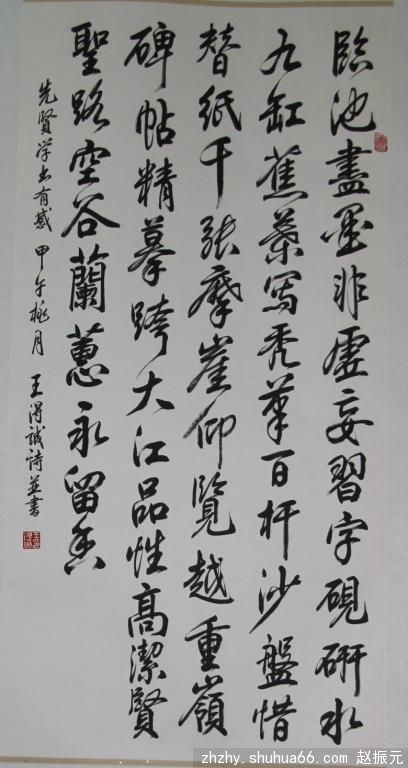 臨池盡墨非虛妄習字硯研水
九缸蕉葉寫禿筆百杆沙盤惜
替紙千張摩崖仰覽越重嶺
碑帖精摹跨大江品性高潔賢
聖路空谷蘭蕙永留香
先賢学书有感 甲午桃月 王得誠诗並書
zhzhy.shuhua66.com 赵振元